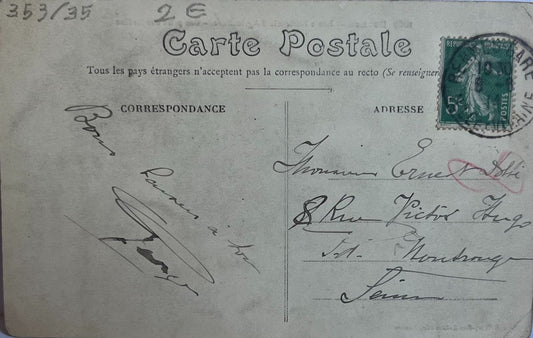 353/35 2 €
Carte Postale
Tous les pays étrangers n'acceptent pas la correspondance au recto (Se renseigner
CORRESPONDANCE
ADRESSE
Bons
baisers à toi
Monsieur Ernest
8 Rue Victor Hugo
Pt. Montrouge
Seine
5c
POSTES
GARE